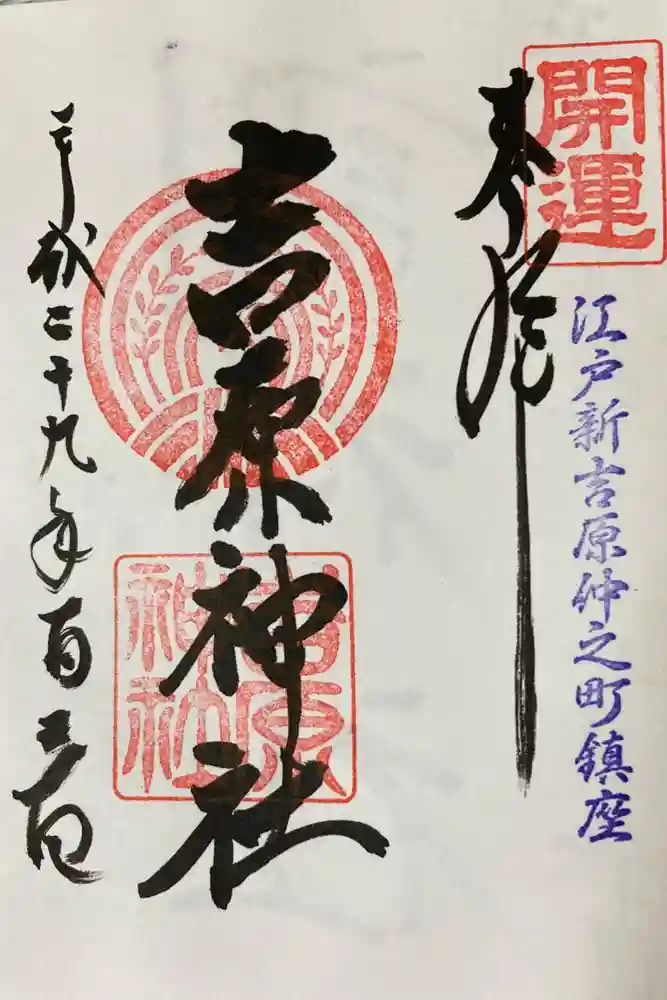 開運
江戸新吉原仲之町鎮座
奉拝
吉原神社
吉原
神社
平成二十九年